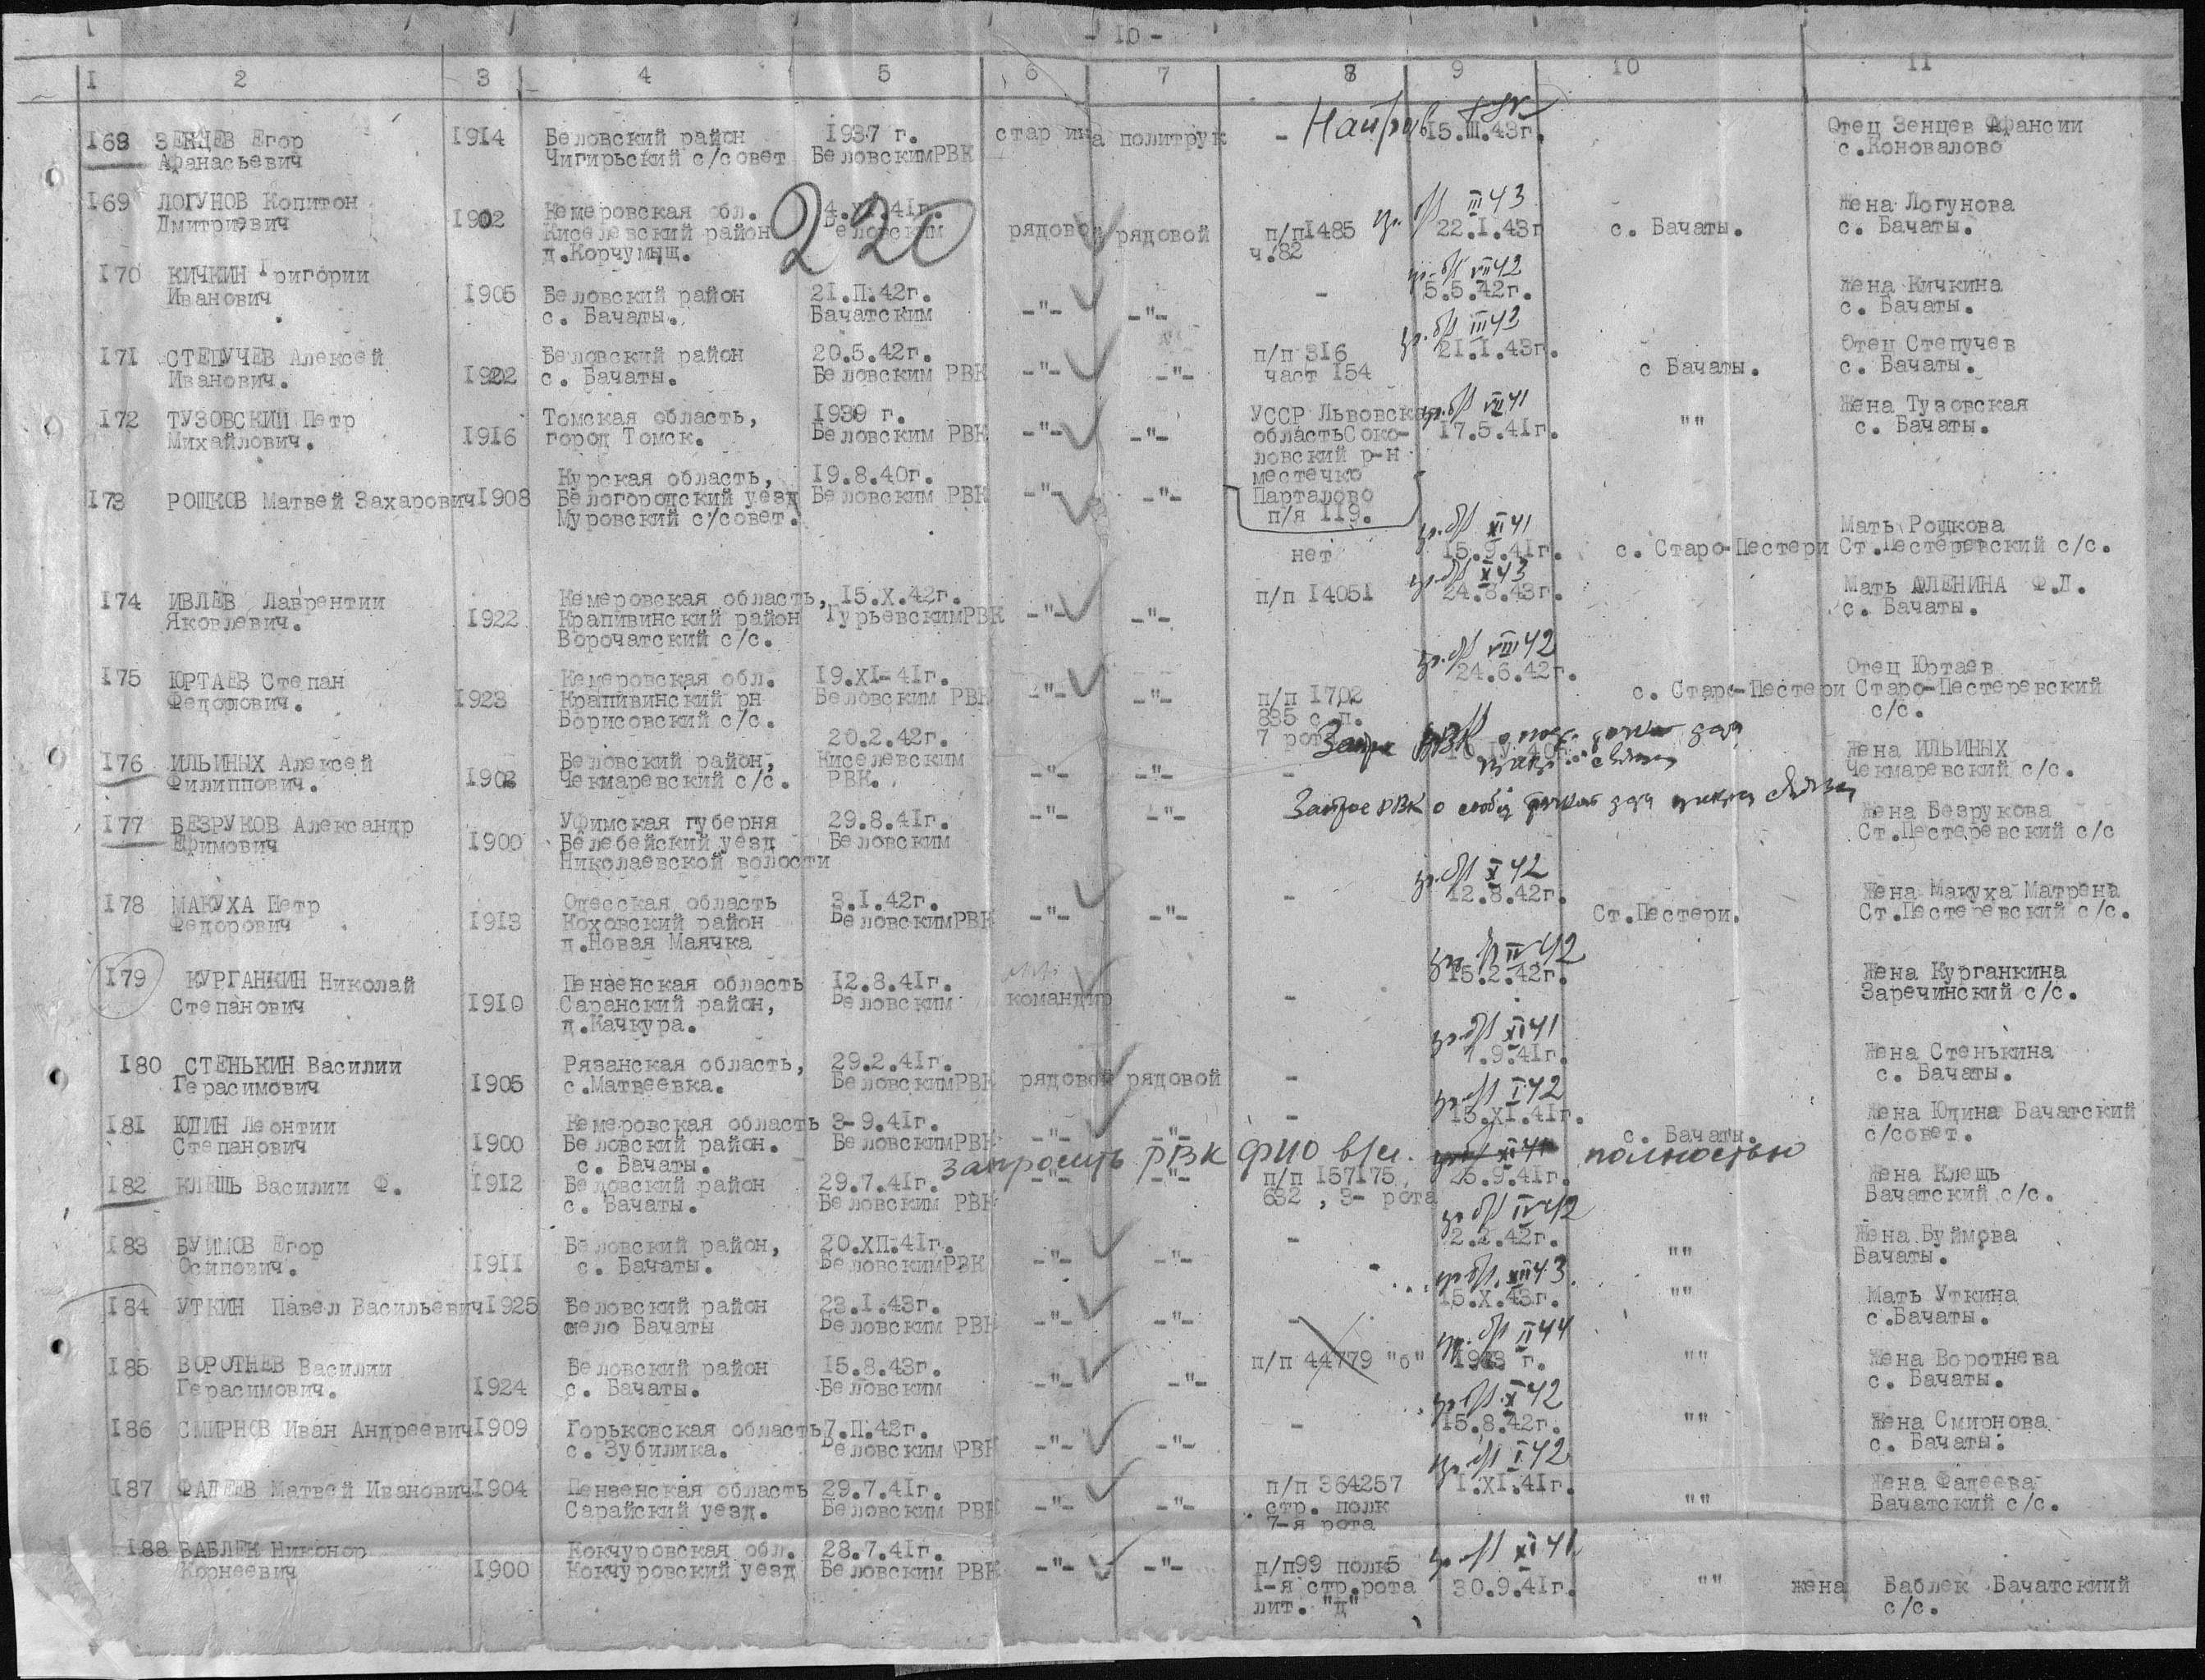 - 10 -
1 2 3 4 5 6 7 8 9 10 11
168 ЗЕНЦЕВ Егор 1914 Беловский район 1937 г. стар ина политрук - Направ 15.III.43г. Отец Зенцев Афансии
Афанасьевич Чигирьский с/совет БеловскимРВК с.Коновалово
220
169 ЛОГУНОВ Копитон Кемеровская обл. 4.XI.41г. III 43 Жена Логунова
Дмитриэвич 1902 Киселевский район Беловским рядовой рядовой п/п1485 22.I.43г с. Бачаты. с. Бачаты.
д.Корчумыщ. ч.82
170 КИЧКИН Григории VII 42 Жена Кичкина
Иванович 1905 Беловский район 21.П.42г. -"- -"- - 5.5.42г. с. Бачаты.
с. Бачаты. Бачатским
171 СТЕПУЧЕВ Алексей Беловский район 20.5.42г. п/п 316 III 43 21.I.43г. Отец Степучев
Иванович. 1922 с. Бачаты. Беловским РВК -"- -"- част 154 с Бачаты. с. Бачаты.
172 ТУЗОВСКИЙ Петр Томская область, 1939 г. УССР Львовская VII 41 Жена Тузовская
Михайлович. 1916 город Томск. Беловским РВК -"- -"- областьСоко- 17.5.41г. "" с. Бачаты.
ловский р-н
Курская область, 19.8.40г. местечко
173 РОШКОВ Матвей Захарович 1908 Белогородский уезд Беловским РВК -"- -"- Парталово
Муровский с/совет. п/я 119.
XI 41 Мать Рошкова
нет 15.9.41г. с. Старо-Пестери Ст.Пестеревский с/с.
174 ИВЛЕВ Лаврентии Кемеровская область, 15.X.42г. п/п 14051 X 43 24.8.43г. Мать АЛЕНИНА Ф.Д.
Яковлевич. 1922 Крапивинский район ГурьевскимРВК -"- -"- с. Бачаты.
Ворочатский с/с.
VIII 42
175 ЮРТАЕВ Степан Кемеровская обл. 19.XI-41г. 24.6.42г. Отец Юртаев
Федорович. 1923 Крапивинский рн Беловским РВК -"- -"- п/п 1702 с. Старо-Пестери Старо-Пестеревский
Борисовский с/с. 835 с.п. с/с.
20.2.42г. 7 рота
176 ИЛЬИНЫХ Алексей Беловский район, Киселевским Жена ИЛЬИНЫХ
Филиппович. 1902 Чекмаревский с/с. РВК. -"- -"- - Чекмаревский с/с.
Запрос РВК о
177 БЕЗРУКОВ Александр Уфимская губерня 29.8.41г. -"- -"- Жена Безрукова
Ефимович 1900 Белебейский уезд Беловским Ст.Пестеревский с/с
Николаевской волости
X 42
178 МАКУХА Петр Одесская область 3.I.42г. - 12.8.42г. Жена Макуха Матрена
Федорович 1913 Коховский район БеловскимРВК -"- -"- Ст.Пестери. Ст.Пестеревский с/с.
д.Новая Маячка
IV 42
179 КУРГАНКИН Николай Пензенская область 12.8.41г. 15.2.42г. Жена Курганкина
Степанович 1910 Саранский район, Беловским командир - Заречинский с/с.
д.Качкура.
XI 41
180 СТЕНЬКИН Василии Рязанская область, 29.2.41г. 7.9.41г. Жена Стенькина
Герасимович 1905 с.Матвеевка. БеловскимРВК рядовой рядовой - с. Бачаты.
I 42
181 ЮДИН Леонтии Кемеровская область 3-9.41г. - 15.XI.41г. Жена Юдина Бачатский
Степанович 1900 Беловский район. БеловскимРВК -"- -"- с. Бачаты. с/совет.
с. Бачаты.
запросить РВК ФИО в/сл. XI 41 полностью
182 КЛЕЩЬ Василии Ф. 1912 Беловский район 29.7.41г. -"- -"- п/п 157175 25.9.41г. Жена Клещь
с. Бачаты. Беловским РВК 632 , 3- рота Бачатский с/с.
IV 42
183 БУЙМОВ Егор Беловский район, 20.XП.41г. - 2.2.42г. Жена Буймова
Осипович. 1911 с. Бачаты. БеловскимРВК -"- -"- "" Бачаты.
XII 43
184 УТКИН Павел Васильевич 1925 Беловский район 23.I.43г. 15.X.43г. "" Мать Уткина
село Бачаты Беловским РВК -"- -"- - с.Бачаты.
II 44
185 ВОРОТНЕВ Василии Беловский район 15.8.43г. п/п 44779 "б" 1943 г. "" Жена Воротнева
Герасимович. 1924 с. Бачаты. Беловским -"- -"- с. Бачаты.
X 42
186 СМИРНОВ Иван Андреевич 1909 Горьковская область 7.П.42г. - 15.8.42г. "" Жена Смирнова
с. Зубилика. Беловским РВК -"- -"- с. Бачаты.
I 42
187 ФАДЕЕВ Матвей Иванович 1904 Пензенская область 29.7.41г. п/п 364257 1.XI.41г. Жена Фадеева
Сарайский уезд. Беловским РВК -"- -"- стр. полк "" Бачатский с/с.
7-я рота
188 БАБЛЕК Никонор Кокчуровская обл. 28.7.41г. XI 41
Корнеевич 1900 Кокчуровский уезд Беловским РВК -"- -"- п/п99 полк5
1-я стр.рота 30.9.41г. "" жена Баблек Бачатскиий
лит. "д" с/с.